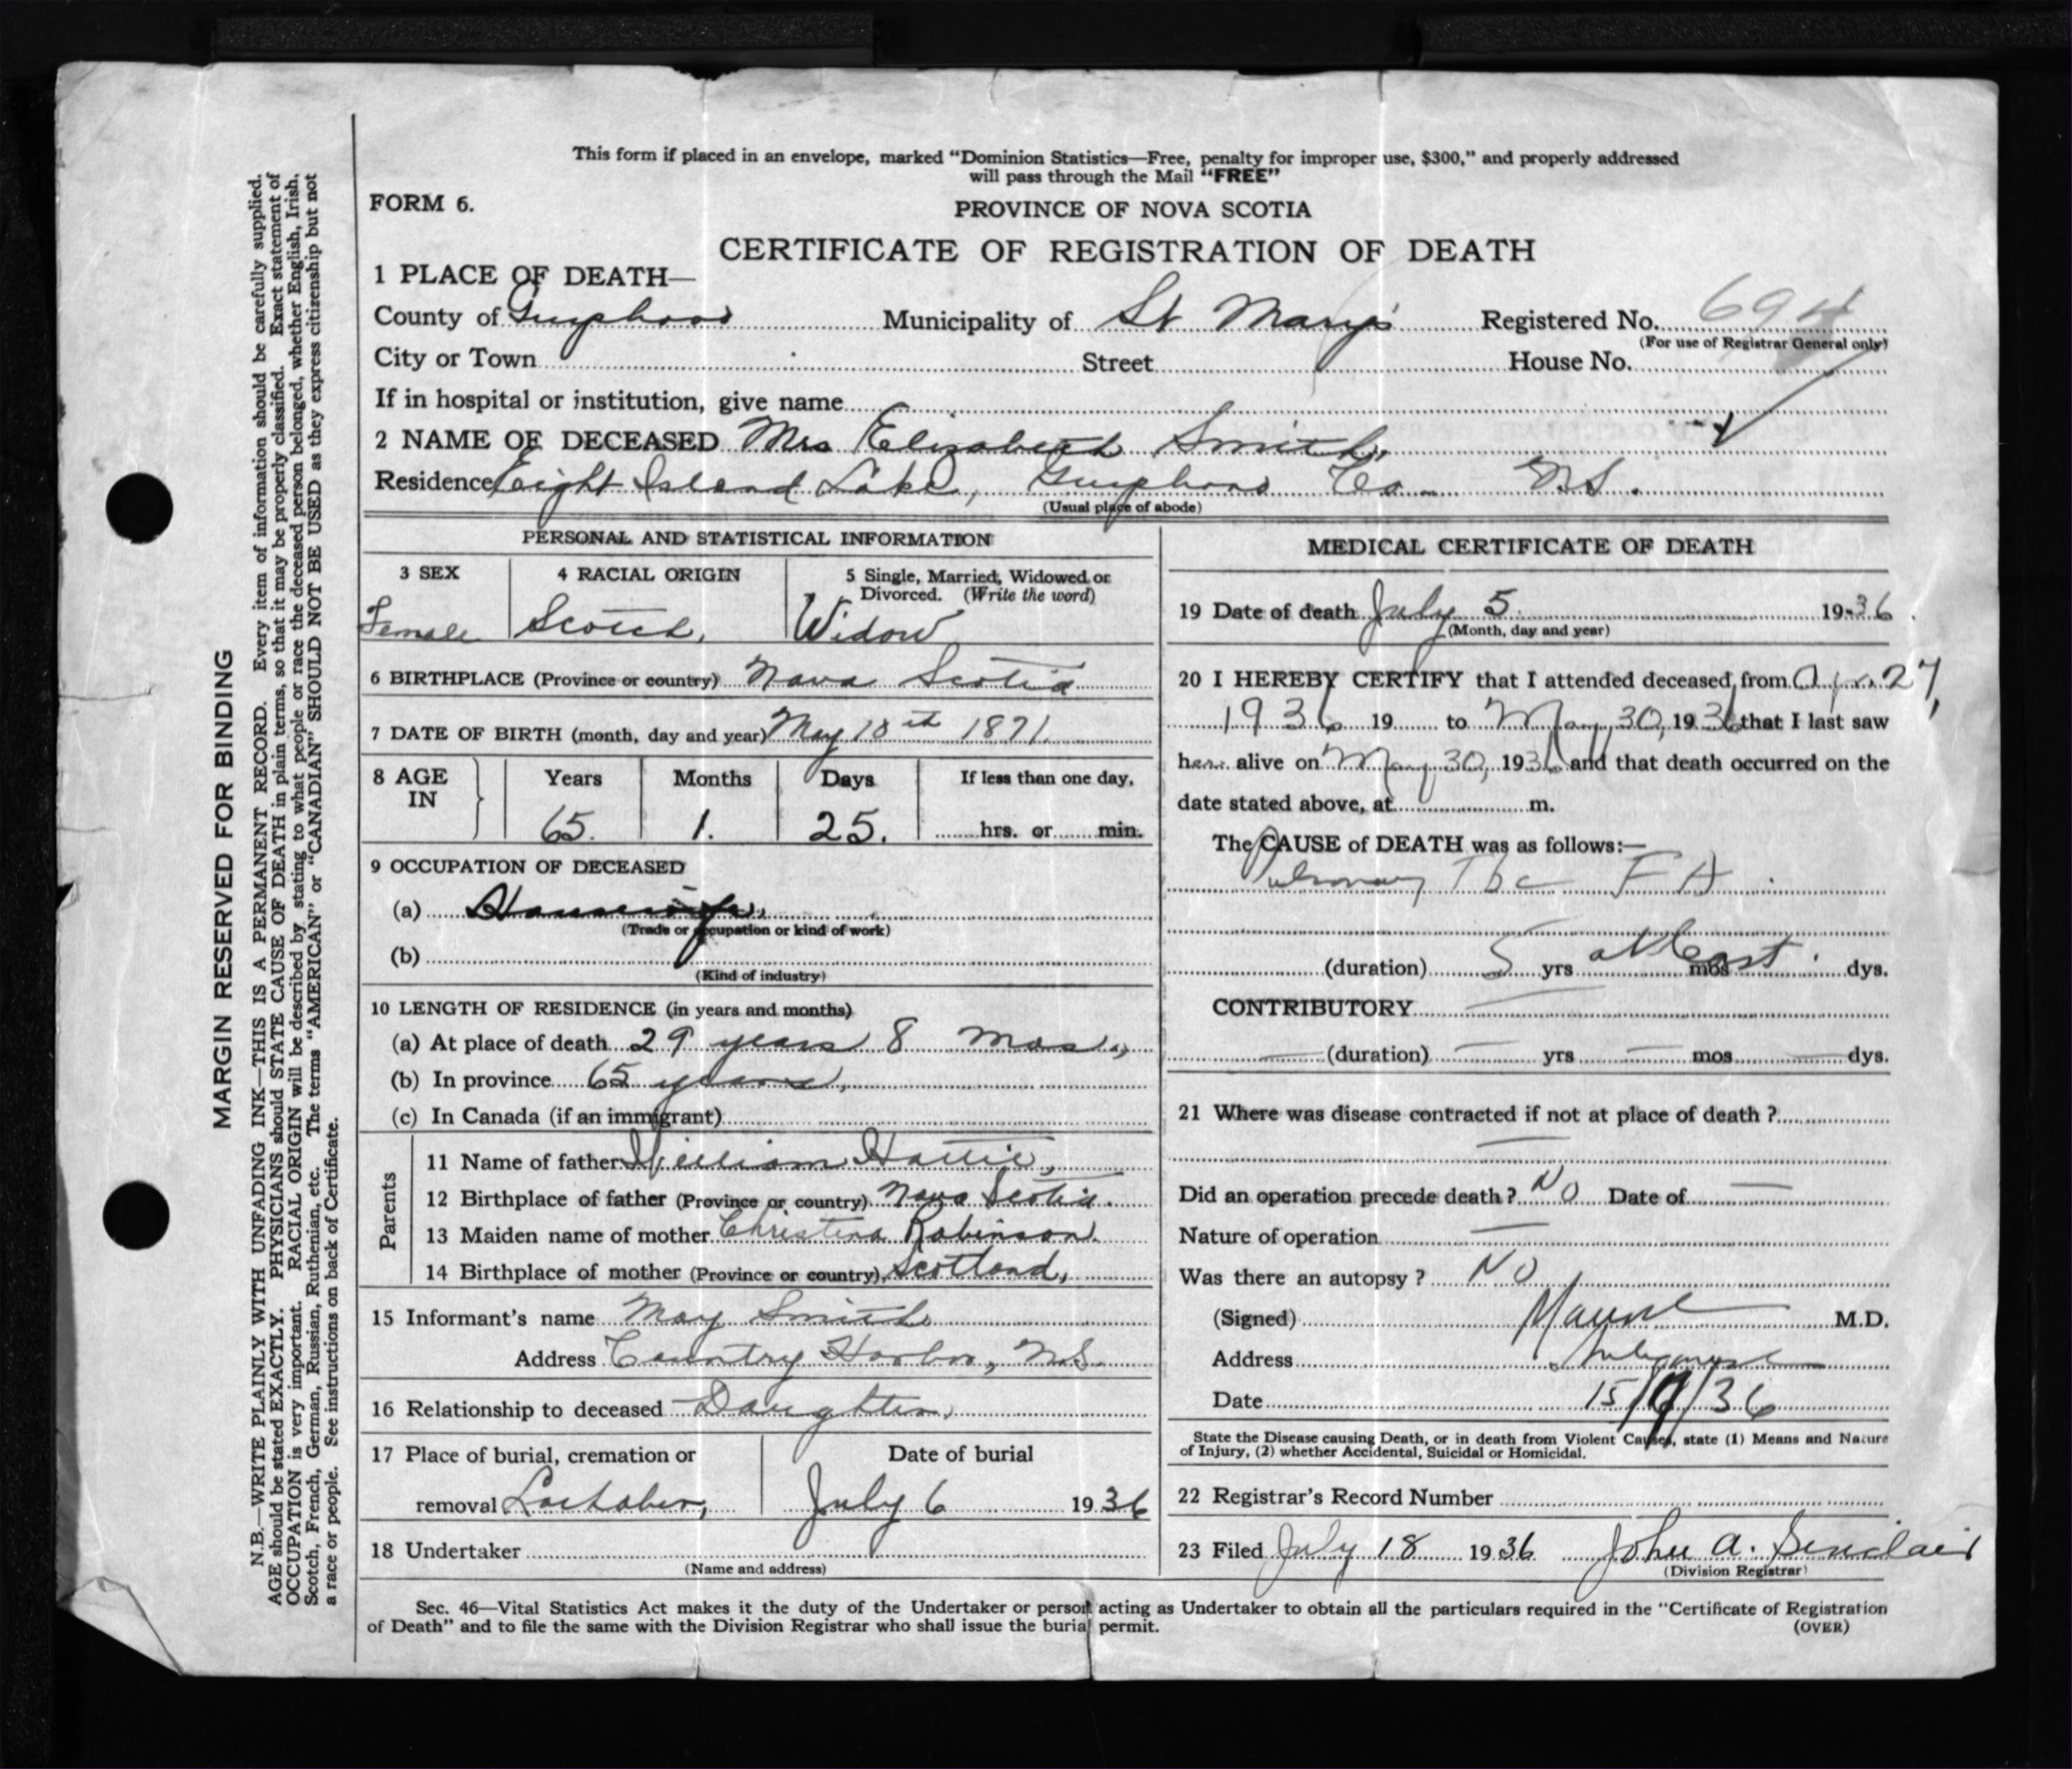 This form if placed in an envelope, marked "Dominion Statistics—Free, penalty for improper use, $300," and properly addressed
will pass through the Mail "FREE"
FORM 6.
PROVINCE OF NOVA SCOTIA
CERTIFICATE OF REGISTRATION OF DEATH
1 PLACE OF DEATH—
County of Guysboro Municipality of St Mary's Registered No. 694
(For use of Registrar General only)
City or Town Street House No.
If in hospital or institution, give name
2 NAME OF DECEASED Mrs Elizabeth Smith,
Residence Eight Island Lake, Guysboro Co N.S.
(Usual place of abode)
PERSONAL AND STATISTICAL INFORMATION
3 SEX 4 RACIAL ORIGIN 5 Single, Married, Widowed or
Divorced. (Write the word)
Female Scotch, Widow
6 BIRTHPLACE (Province or country) Nova Scotia
7 DATE OF BIRTH (month, day and year) May 10th 1871.
8 AGE IN Years Months Days If less than one day,
65. 1. 25. hrs. or min.
9 OCCUPATION OF DECEASED
(a) Housewife,
(Trade or occupation or kind of work)
(b)
(Kind of industry)
10 LENGTH OF RESIDENCE (in years and months)
(a) At place of death 29 years 8 mos.,
(b) In province 65 years,
(c) In Canada (if an immigrant)
Parents
11 Name of father William Hattie,
12 Birthplace of father (Province or country) Nova Scotia.
13 Maiden name of mother Christena Robinson.
14 Birthplace of mother (Province or country) Scotland,
15 Informant's name May Smith
Address Country Harbor, N.S.
16 Relationship to deceased Daughter,
17 Place of burial, cremation or Date of burial
removal Lochaber, July 6 1936
18 Undertaker
(Name and address)
MEDICAL CERTIFICATE OF DEATH
19 Date of death July 5. 1936.
(Month, day and year)
20 I HEREBY CERTIFY that I attended deceased from Apr. 27,
1936 19 to May 30, 1936 that I last saw
her alive on May 30, 1936 and that death occurred on the
date stated above, at m.
The CAUSE of DEATH was as follows:—
Pulmonary Tbc F A
(duration) 5 yrs at least mos dys.
CONTRIBUTORY —
— (duration) — yrs — mos — dys.
21 Where was disease contracted if not at place of death?
—
Did an operation precede death? No Date of —
Nature of operation —
Was there an autopsy? No
(Signed) M.D.
Address
Date 15/7/36
State the Disease causing Death, or in death from Violent Causes, state (1) Means and Nature
of Injury, (2) whether Accidental, Suicidal or Homicidal.
22 Registrar's Record Number
23 Filed July 18 1936 John A. Sinclair
(Division Registrar)
Sec. 46—Vital Statistics Act makes it the duty of the Undertaker or person acting as Undertaker to obtain all the particulars required in the "Certificate of Registration
of Death" and to file the same with the Division Registrar who shall issue the burial permit.
(OVER)
MARGIN RESERVED FOR BINDING
N.B.—WRITE PLAINLY WITH UNFADING INK—THIS IS A PERMANENT RECORD. Every item of information should be carefully supplied.
AGE should be stated EXACTLY. PHYSICIANS should STATE CAUSE OF DEATH in plain terms, so that it may be properly classified. Exact statement of
OCCUPATION is very important. RACIAL ORIGIN will be described by stating to what people or race the deceased person belonged, whether English, Irish,
Scotch, French, German, Russian, Ruthenian, etc. The terms "AMERICAN" or "CANADIAN" SHOULD NOT BE USED as they express citizenship but not
a race or people. See instructions on back of Certificate.